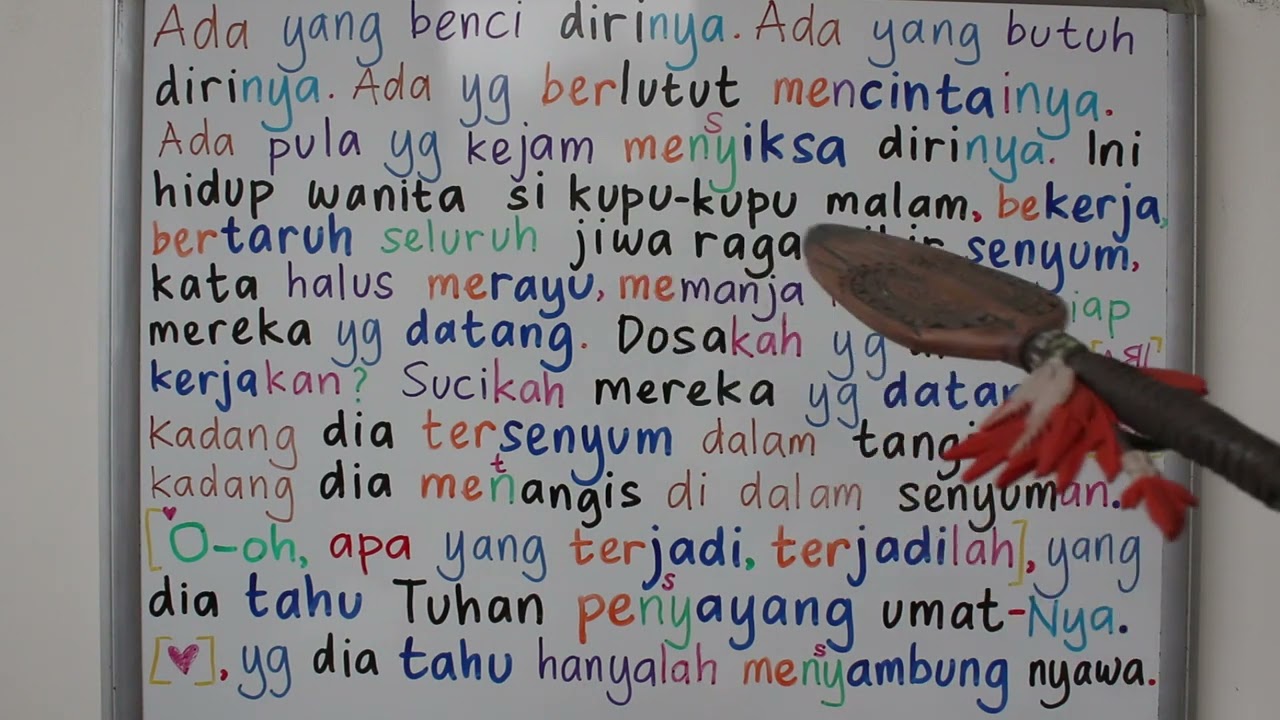 Ada yang benci dirinya. Ada yang butuh
dirinya. Ada yg berlutut mencintainya.
Ada pula yg kejam menyiksa dirinya. Ini
s
hidup wanita si kupu-kupu malam, bekerja,
bertaruh seluruh jiwa raga senyum,
kata halus merayu, memanja iap
mereka yg datang. Dosakah yg
kerjakan? Sucikah mereka yg
kadang dia tersenyum dalam
t
kadang dia menangis di dalam senyuman.
[♥O-oh, apa yang terjadi, terjadilah], yang
s
dia tahu Tuhan penyayang umat-Nya.
s
[♥], yg dia tahu hanyalah menyambung nyawa.